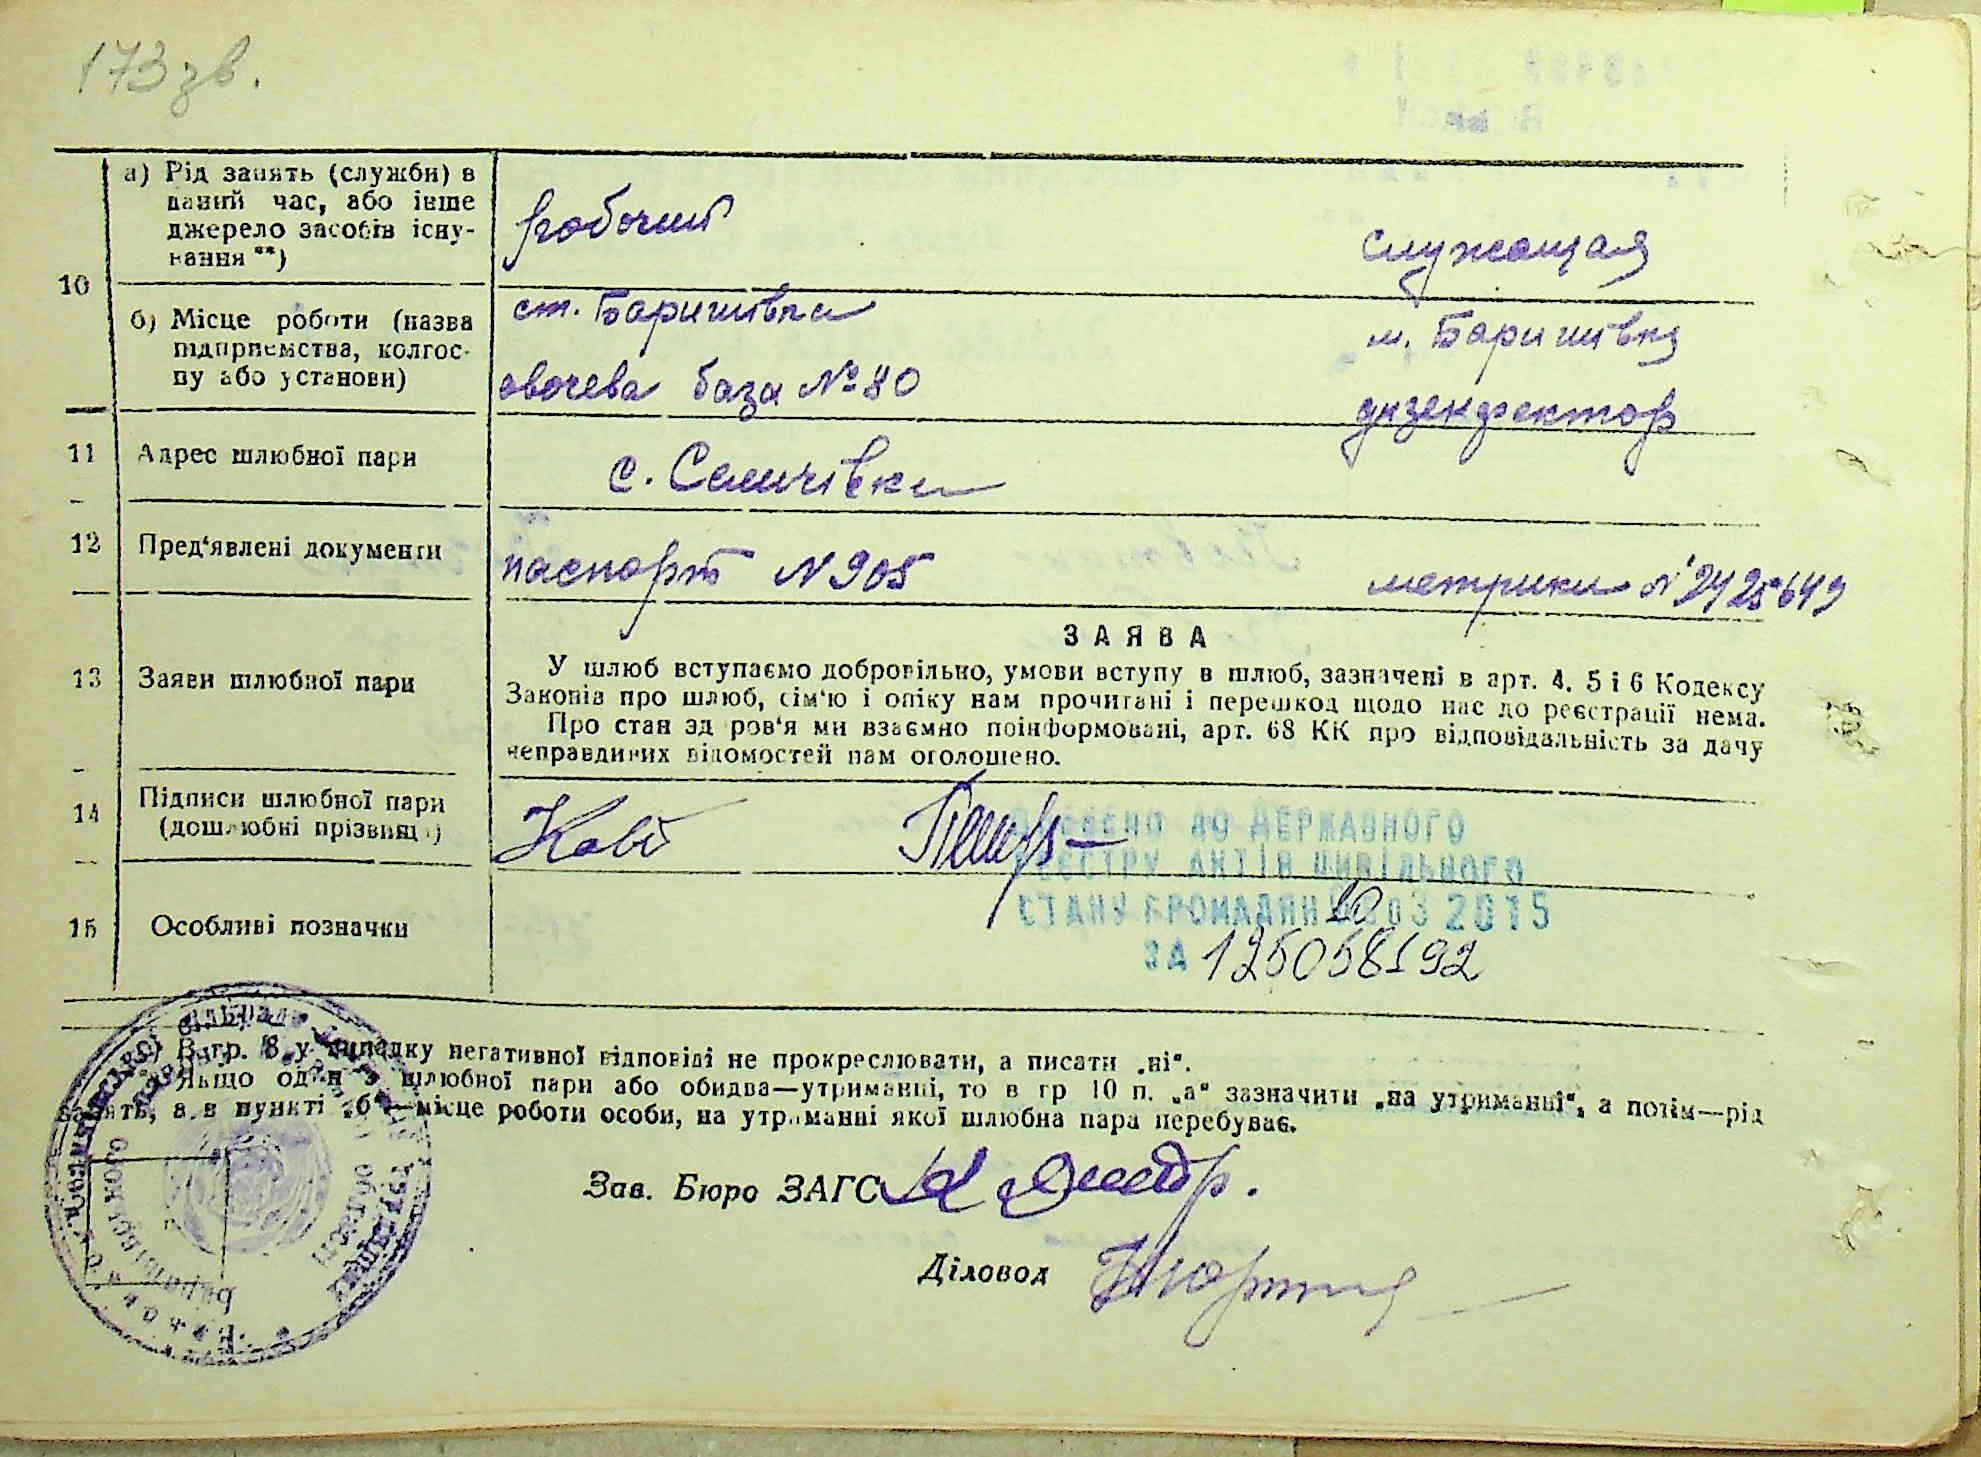 173 зв.
10
а) Рід занять (служби) в
даний час, або інше
джерело засобів існу-
вання **)
робочий
служащая
б) Місце роботи (назва
підприємства, колгос-
пу або установи)
ст. Баришівка
овочева база № 80
м. Баришівка
дизенфектор
11
Адрес шлюбної пари
с. Селичівка
12
Пред'явлені документи
паспорт N 905
метрики N 2425649
13
Заяви шлюбної пари
ЗАЯВА
У шлюб вступаємо добровільно, умови вступу в шлюб, зазначені в арт. 4, 5 і 6 Кодексу
Законів про шлюб, сім'ю і опіку нам прочитані і перешкод щодо нас до реєстрації нема.
Про стан здоров'я ми взаємно поінформовані, арт. 68 КК про відповідальність за дачу
неправдивих відомостей нам оголошено.
14
Підписи шлюбної пари
(дошлюбні прізвища)
ДО ДЕРЖАВНОГО
РЕЄСТРУ АКТІВ ЦИВІЛЬНОГО
СТАНУ ГРОМАДЯН 2015
ЗА 125058192
15
Особливі позначки
В гр. 8 у випадку негативної відповіді не прокреслювати, а писати „ні“.
Якщо один з шлюбної пари або обидва—утриманці, то в гр 10 п. „а“ зазначити „на утриманні“, а потім—рід
занять, а в пункті „б“—місце роботи особи, на утриманні якої шлюбна пара перебуває.
Зав. Бюро ЗАГС
Діловод